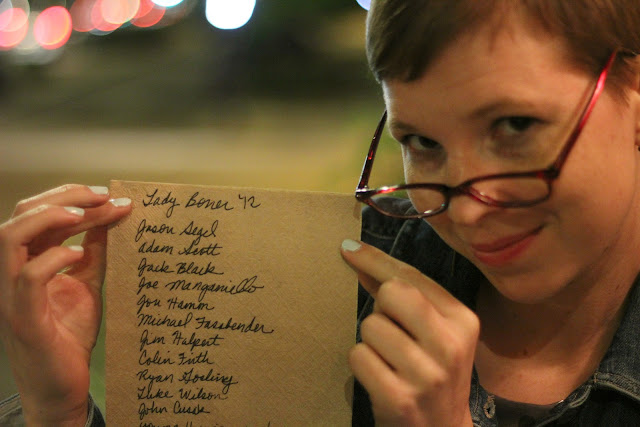 Lady Boner '12
Jason Segel
Adam Scott
Jack Black
Joe Manganiello
Jon Hamm
Michael Fassbender
Jim Halpert
Colin Firth
Ryan Gosling
Luke Wilson
John Cusack